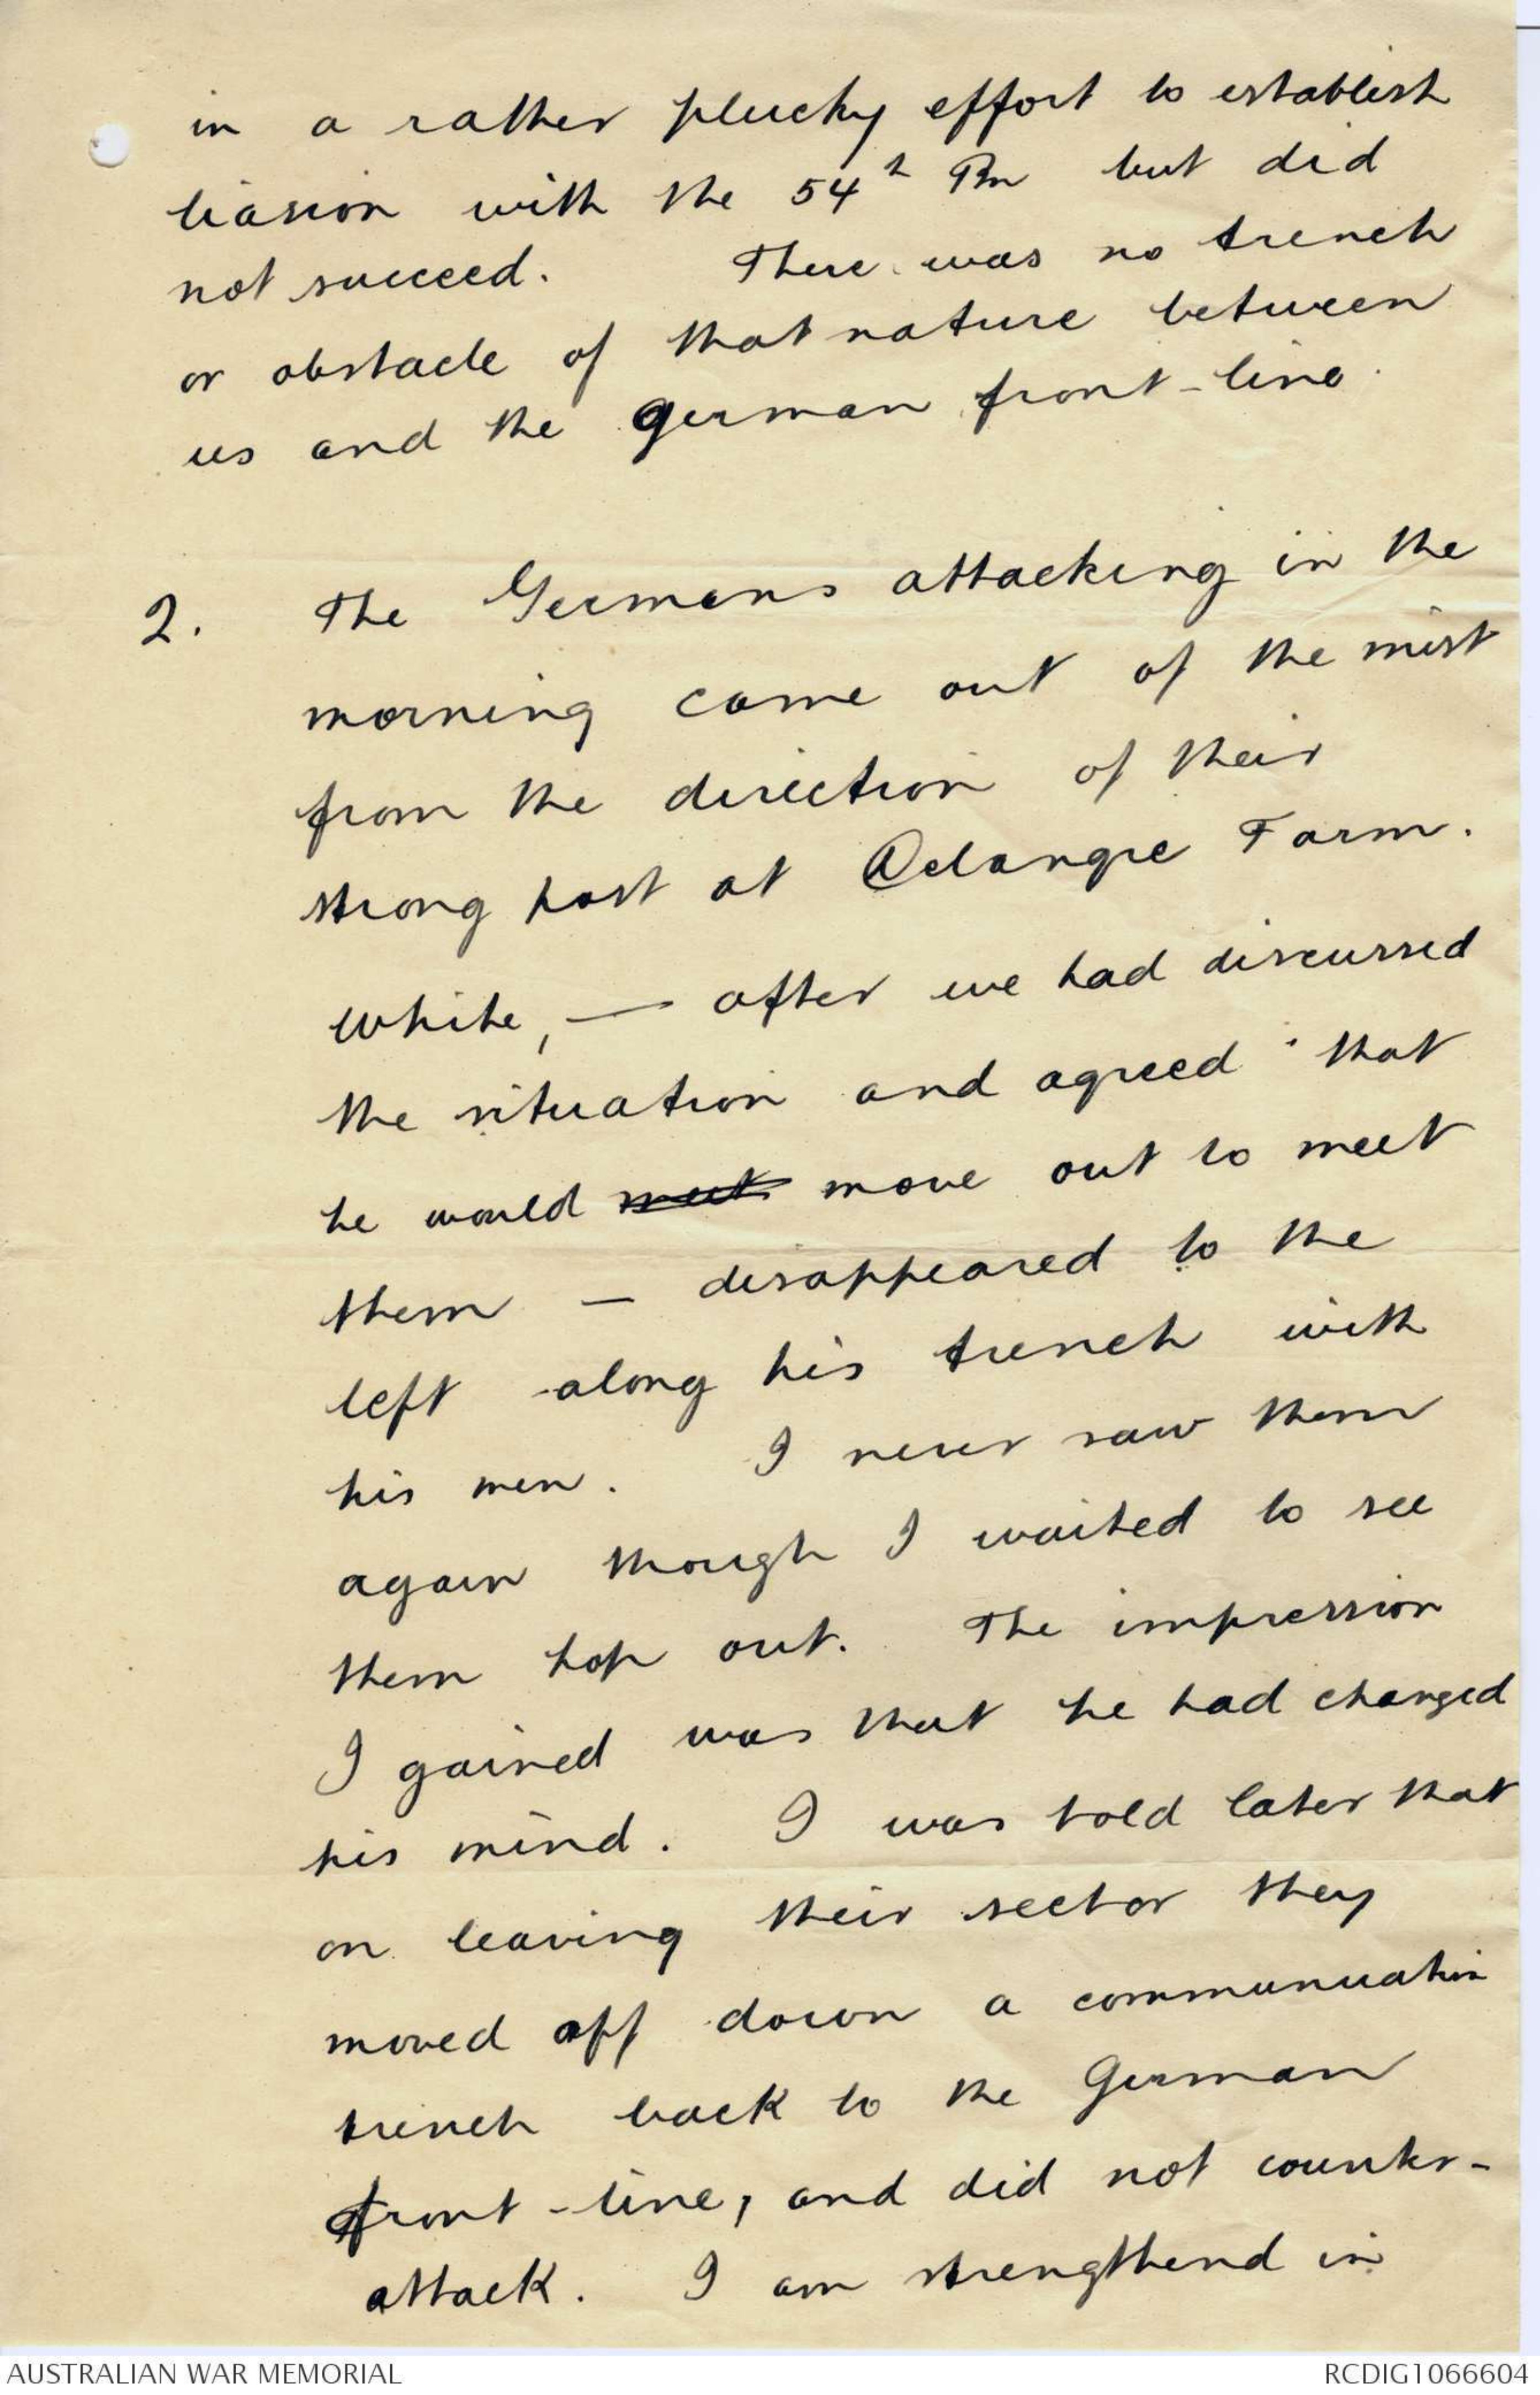 in a rather plucky effort to establish
liasion with the 54th Bn but did
not succeed. There was no trench
or obstacle of that nature between
us and the German front-line.
2. The Germans attacking in the
morning came out of the mist
from the direction of their
strong post at Delangre Farm.
White, — after we had discussed
the situation and agreed that
he would meet move out to meet
them — disappeared to the
left along his trench with
his men. I never saw them
again though I waited to see
them hop out. The impression
I gained was that he had changed
his mind. I was told later that
on leaving their sector they
moved off down a communication
trench back to the German
front-line, and did not counter-
attack. I am strengthend in
AUSTRALIAN WAR MEMORIAL
RCDIG1066604